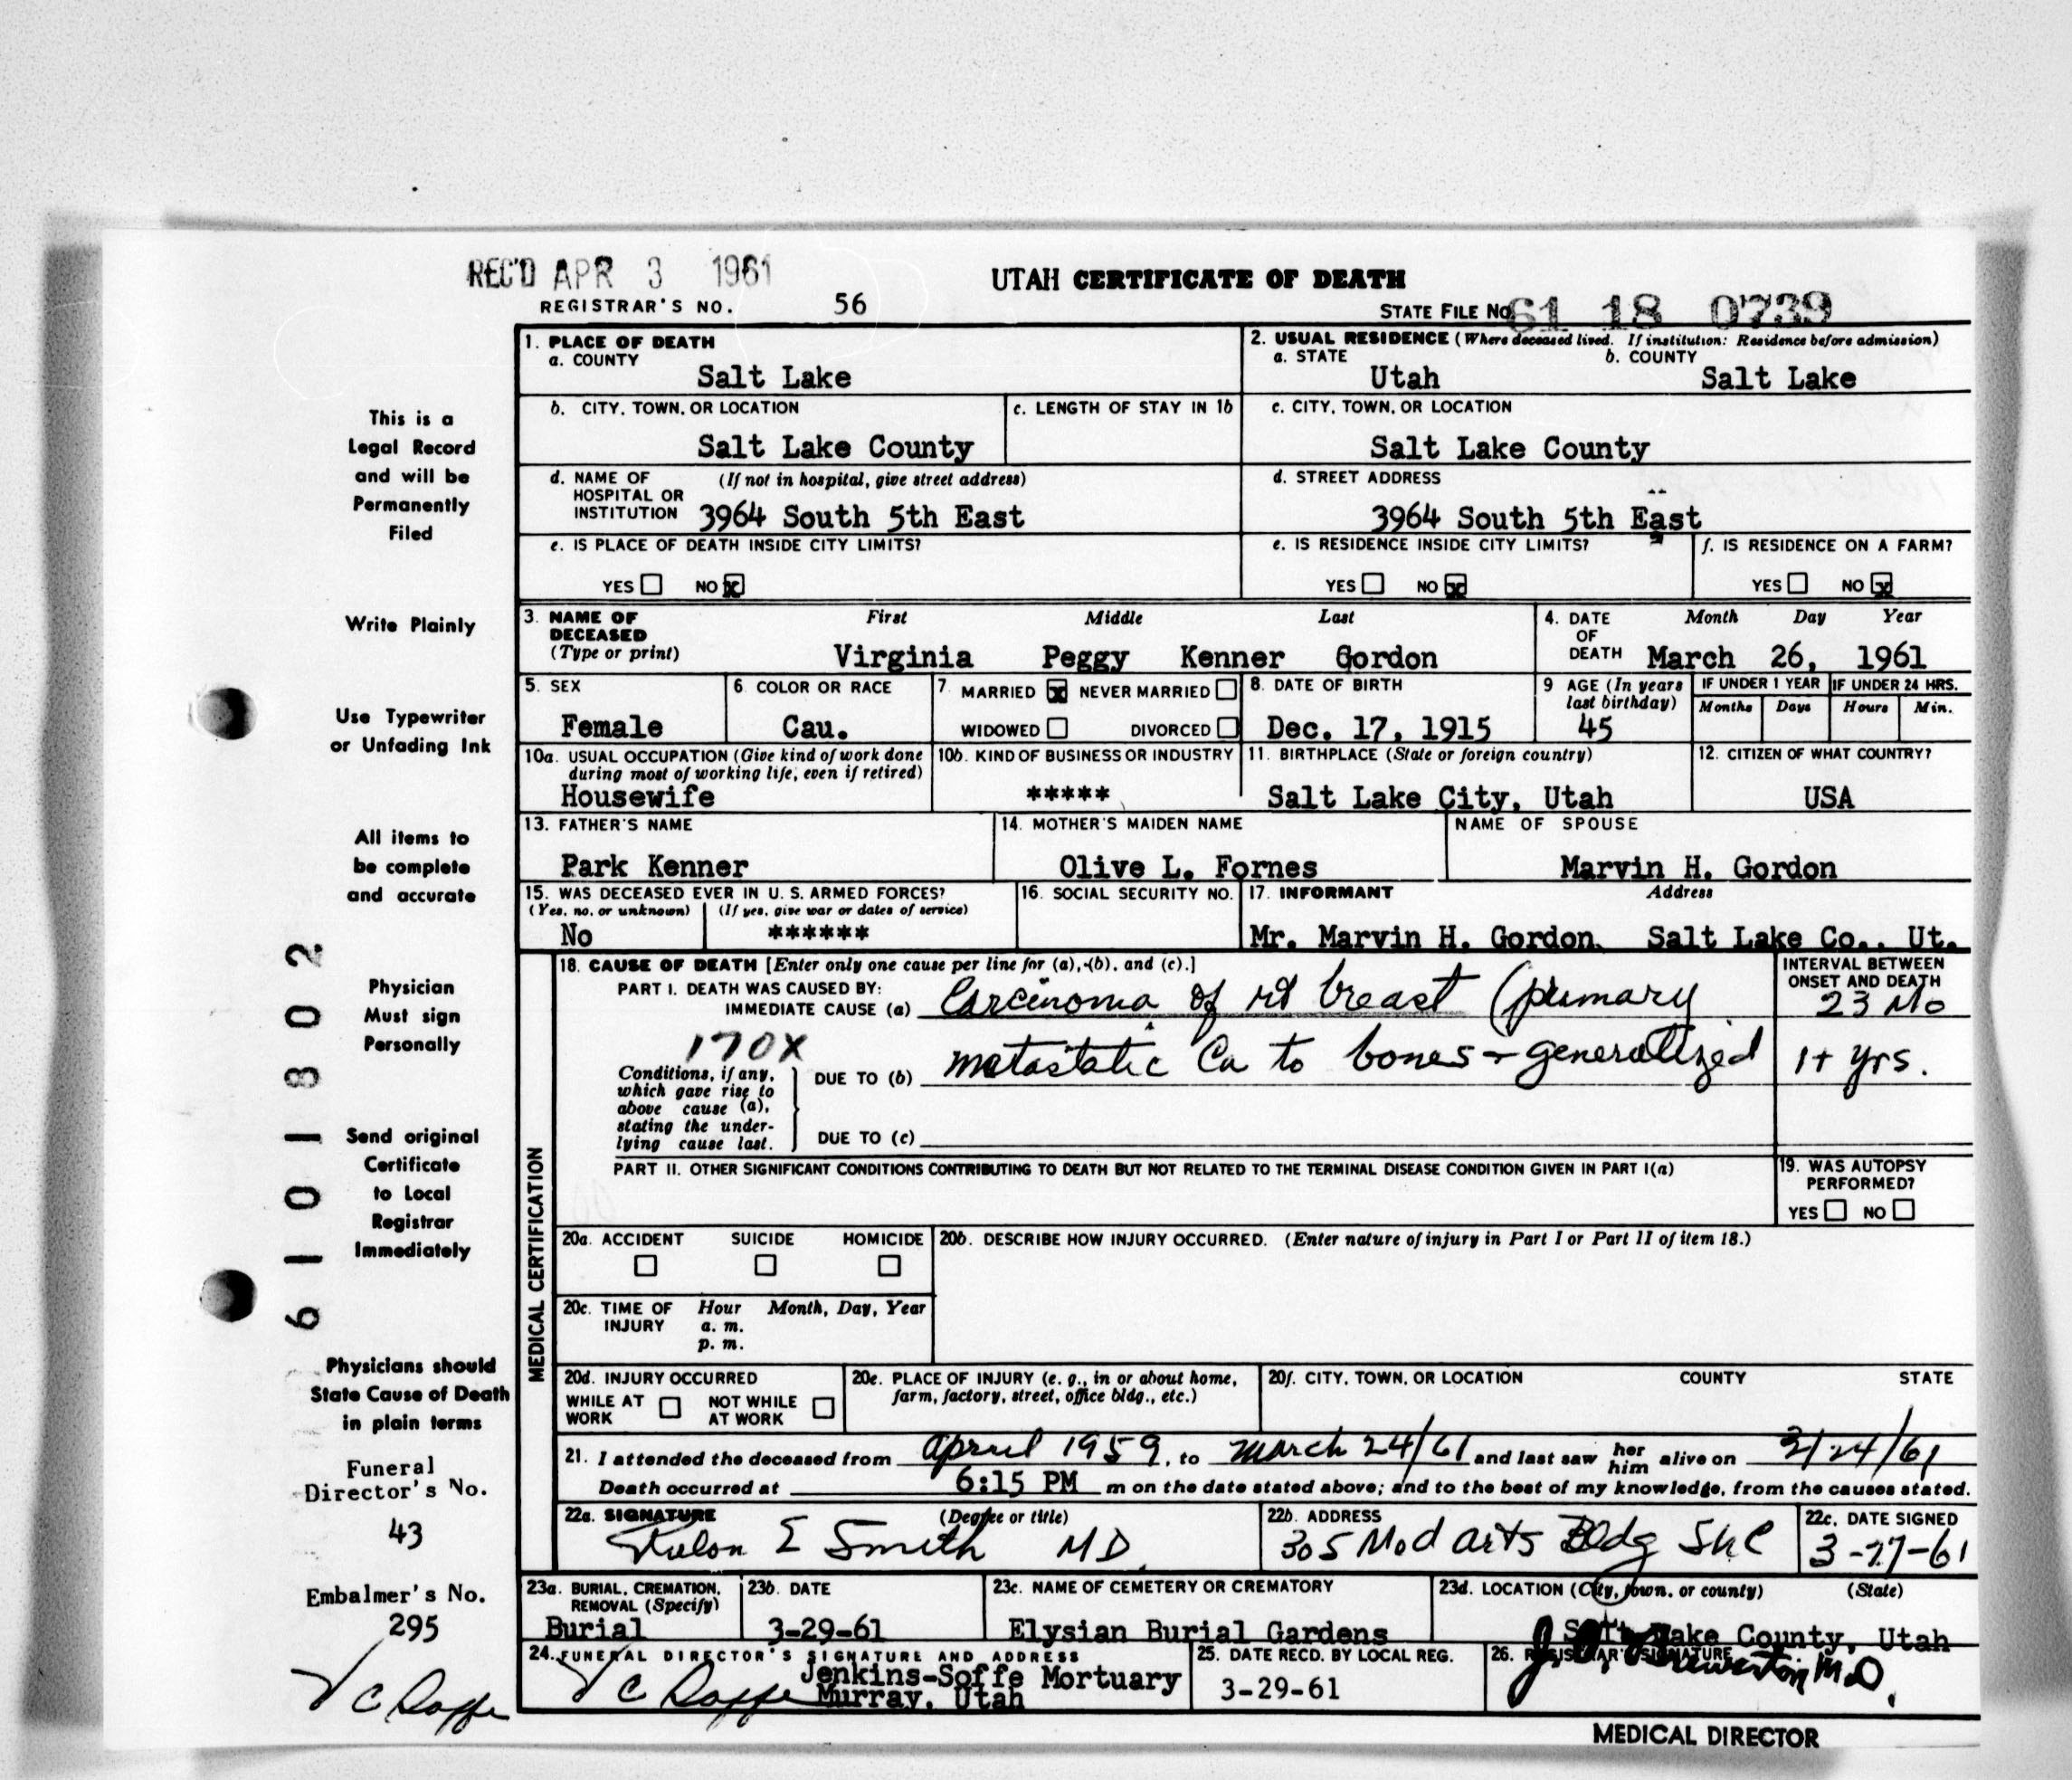 REC'D APR 3 1961
UTAH CERTIFICATE OF DEATH
REGISTRAR'S NO. 56
STATE FILE NO. 61 18 0739
1. PLACE OF DEATH
a. COUNTY
Salt Lake
2. USUAL RESIDENCE (Where deceased lived. If institution: Residence before admission)
a. STATE b. COUNTY
Utah Salt Lake
b. CITY, TOWN, OR LOCATION
Salt Lake County
c. LENGTH OF STAY IN 1b
c. CITY, TOWN, OR LOCATION
Salt Lake County
d. NAME OF HOSPITAL OR INSTITUTION (If not in hospital, give street address)
3964 South 5th East
d. STREET ADDRESS
3964 South 5th East
e. IS PLACE OF DEATH INSIDE CITY LIMITS?
YES NO X
e. IS RESIDENCE INSIDE CITY LIMITS?
YES NO X
f. IS RESIDENCE ON A FARM?
YES NO X
3. NAME OF DECEASED (Type or print)
First Middle Last
Virginia Peggy Kenner Gordon
4. DATE OF DEATH
Month Day Year
March 26, 1961
5. SEX
Female
6. COLOR OR RACE
Cau.
7. MARRIED X NEVER MARRIED
WIDOWED DIVORCED
8. DATE OF BIRTH
Dec. 17, 1915
9 AGE (In years last birthday)
45
IF UNDER 1 YEAR
Months Days
IF UNDER 24 HRS.
Hours Min.
10a. USUAL OCCUPATION (Give kind of work done during most of working life, even if retired)
Housewife
10b. KIND OF BUSINESS OR INDUSTRY
*****
11. BIRTHPLACE (State or foreign country)
Salt Lake City, Utah
12. CITIZEN OF WHAT COUNTRY?
USA
13. FATHER'S NAME
Park Kenner
14. MOTHER'S MAIDEN NAME
Olive L. Fornes
NAME OF SPOUSE
Marvin H. Gordon
15. WAS DECEASED EVER IN U. S. ARMED FORCES?
(Yes, no, or unknown) (If yes, give war or dates of service)
No ******
16. SOCIAL SECURITY NO.
17. INFORMANT Address
Mr. Marvin H. Gordon Salt Lake Co., Ut.
MEDICAL CERTIFICATION
18. CAUSE OF DEATH [Enter only one cause per line for (a), (b), and (c).]
PART I. DEATH WAS CAUSED BY:
IMMEDIATE CAUSE (a) Carcinoma of rt breast (primary
170X
Conditions, if any, which gave rise to above cause (a), stating the underlying cause last.
DUE TO (b) metastatic Ca to bones + generalized
DUE TO (c)
INTERVAL BETWEEN ONSET AND DEATH
23 Mo
1+ yrs.
PART II. OTHER SIGNIFICANT CONDITIONS CONTRIBUTING TO DEATH BUT NOT RELATED TO THE TERMINAL DISEASE CONDITION GIVEN IN PART I(a)
19. WAS AUTOPSY PERFORMED?
YES NO
20a. ACCIDENT SUICIDE HOMICIDE
20b. DESCRIBE HOW INJURY OCCURRED. (Enter nature of injury in Part I or Part II of item 18.)
20c. TIME OF INJURY Hour Month, Day, Year
a. m.
p. m.
20d. INJURY OCCURRED
WHILE AT WORK NOT WHILE AT WORK
20e. PLACE OF INJURY (e. g., in or about home, farm, factory, street, office bldg., etc.)
20f. CITY, TOWN, OR LOCATION COUNTY STATE
21. I attended the deceased from April 1959, to March 24/61 and last saw her him alive on 3/24/61
Death occurred at 6:15 PM m on the date stated above; and to the best of my knowledge, from the causes stated.
22a. SIGNATURE (Degree or title)
Rulon E Smith MD
22b. ADDRESS
305 Med arts Bldg SLC
22c. DATE SIGNED
3-27-61
23a. BURIAL, CREMATION, REMOVAL (Specify)
Burial
23b. DATE
3-29-61
23c. NAME OF CEMETERY OR CREMATORY
Elysian Burial Gardens
23d. LOCATION (City, town, or county) (State)
Salt Lake County, Utah
24. FUNERAL DIRECTOR'S SIGNATURE AND ADDRESS
Jenkins-Soffe Mortuary
Murray, Utah
25. DATE RECD. BY LOCAL REG.
3-29-61
26. REGISTRAR'S SIGNATURE
MEDICAL DIRECTOR
This is a
Legal Record
and will be
Permanently
Filed
Write Plainly
Use Typewriter
or Unfading Ink
All items to
be complete
and accurate
Physician
Must sign
Personally
Send original
Certificate
to Local
Registrar
Immediately
Physicians should
State Cause of Death
in plain terms
Funeral
Director's No.
43
Embalmer's No.
295
6101802